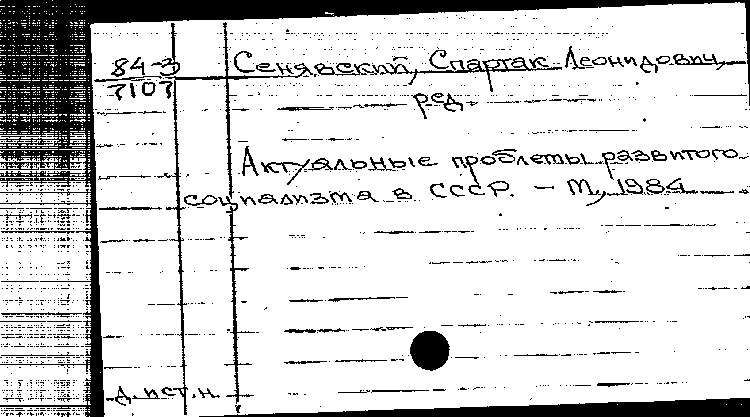 84-3 Сенявский, Спартак Леонидович,
7107
ред.
Актуальные проблемы развитого
социализма в СССР. - М., 1984.
д.ист.н.